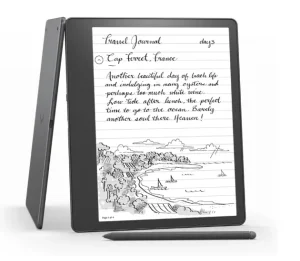 Travel Journal days
Cap Ferret, France
Another beautiful day of lush life
and indulging in many oysters and
perhaps too much white wine.
Low Tide after lunch, the perfect
time to go to the ocean. Barely
another soul there. Heaven!
Page 1 of 1